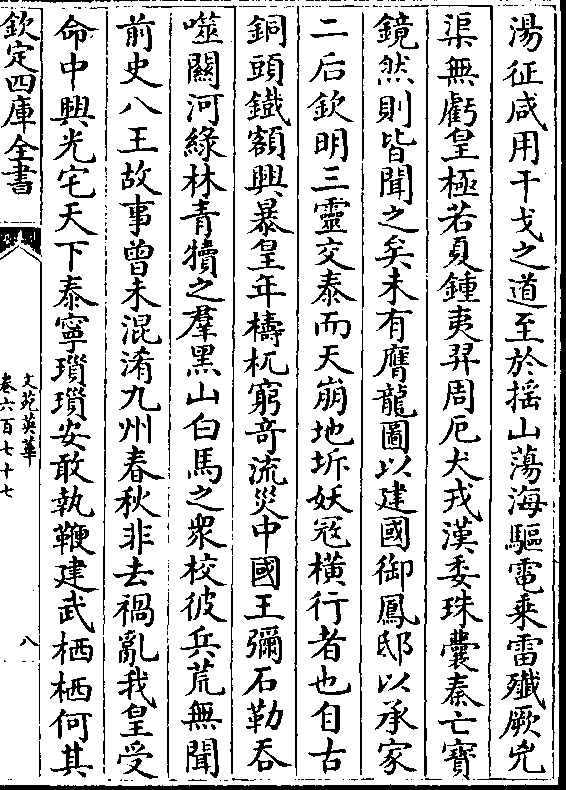 湯征咸用干戈之道至於揺山蕩海驅電乘雷殱厥兇
渠無虧皇極若夏鍾夷羿周厄犬戎漢委珠囊秦亡寶
鏡然則皆聞之矣未有膺龍圖以建國御鳳邸以承家
二后欽明三靈交泰而天崩地坼妖冦橫行者也自古
銅頭鐵額興暴皇年檮杌窮竒流災中國王彌石勒吞
噬關河綠林青犢之羣黑山白馬之衆校彼兵荒無聞
前史八王故事曽未混淆九州春秋非去禍亂我皇受
命中興光宅天下泰寧瑣瑣安敢執鞭建武栖栖何其
欽定四庫全書
文苑英華
卷六百七十七
八